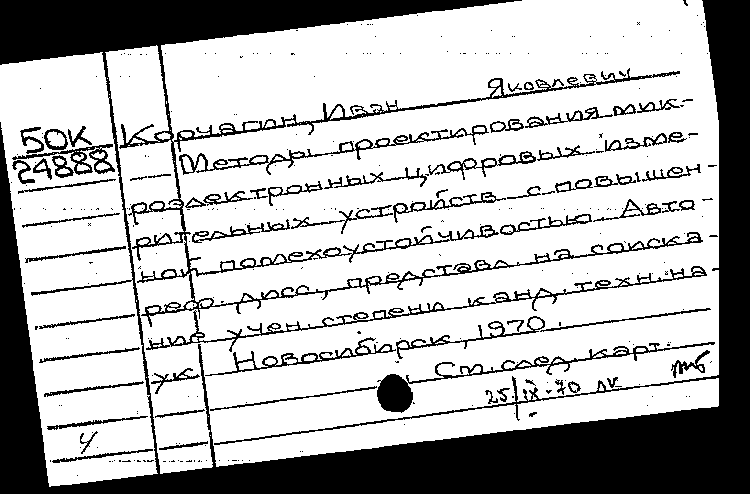 50К Корчагин, Иван Яковлевич
24888 Методы проектирования мик-
роэлектронных цифровых изме-
рительных устройств с повышен-
ной помехоустойчивостью. Авто-
реф. дисс., представл. на соиска-
ние учен. степени канд. техн. на-
ук. Новосибирск, 1970.
См. след. карт.
25/IX-70
4